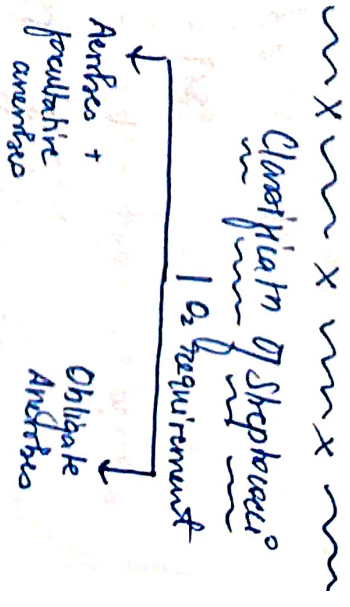 Classificatn of Streptococci
O₂ requirement
Aerobes +
facultative
anerobes
Obligate
Anerobes